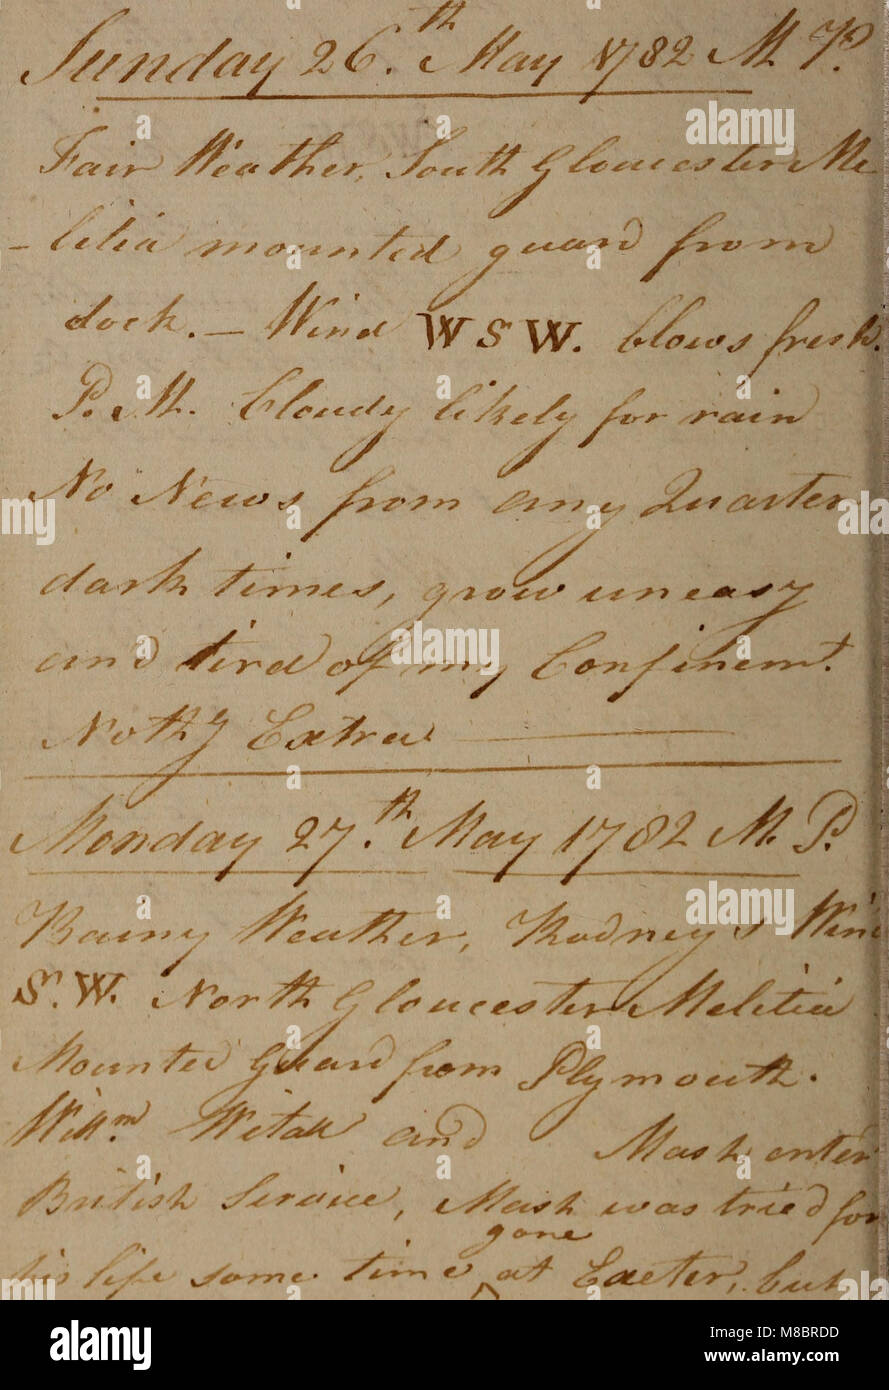 Sunday 26.th May 1782 M. P.
Fair Weather, South Gloucester Me
- litia mounted guard from
dock. — Wind W S W. blows fresh.
P. M. Cloudy likely for rain
No News from any Quarter
dark times, grow uneasy
and tired of my Confinemt.
Nothg Extra
Monday 27.th May 1782 M. P.
Rainy Weather, Rodney's Wind
S. W. North Gloucester Melitia
Mounted Guard from Plymouth.
Willm. Witall and Mash enter'd
British Service, Mash was tried for
gone
his life some time ^ at Exeter, but
alamy
Image ID: M8BRDD
www.alamy.com